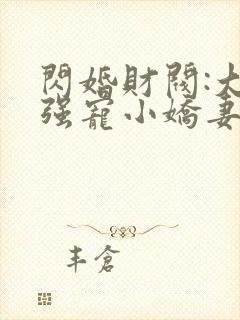 閃婚財閥:大
强寵小嬌妻
丰倉